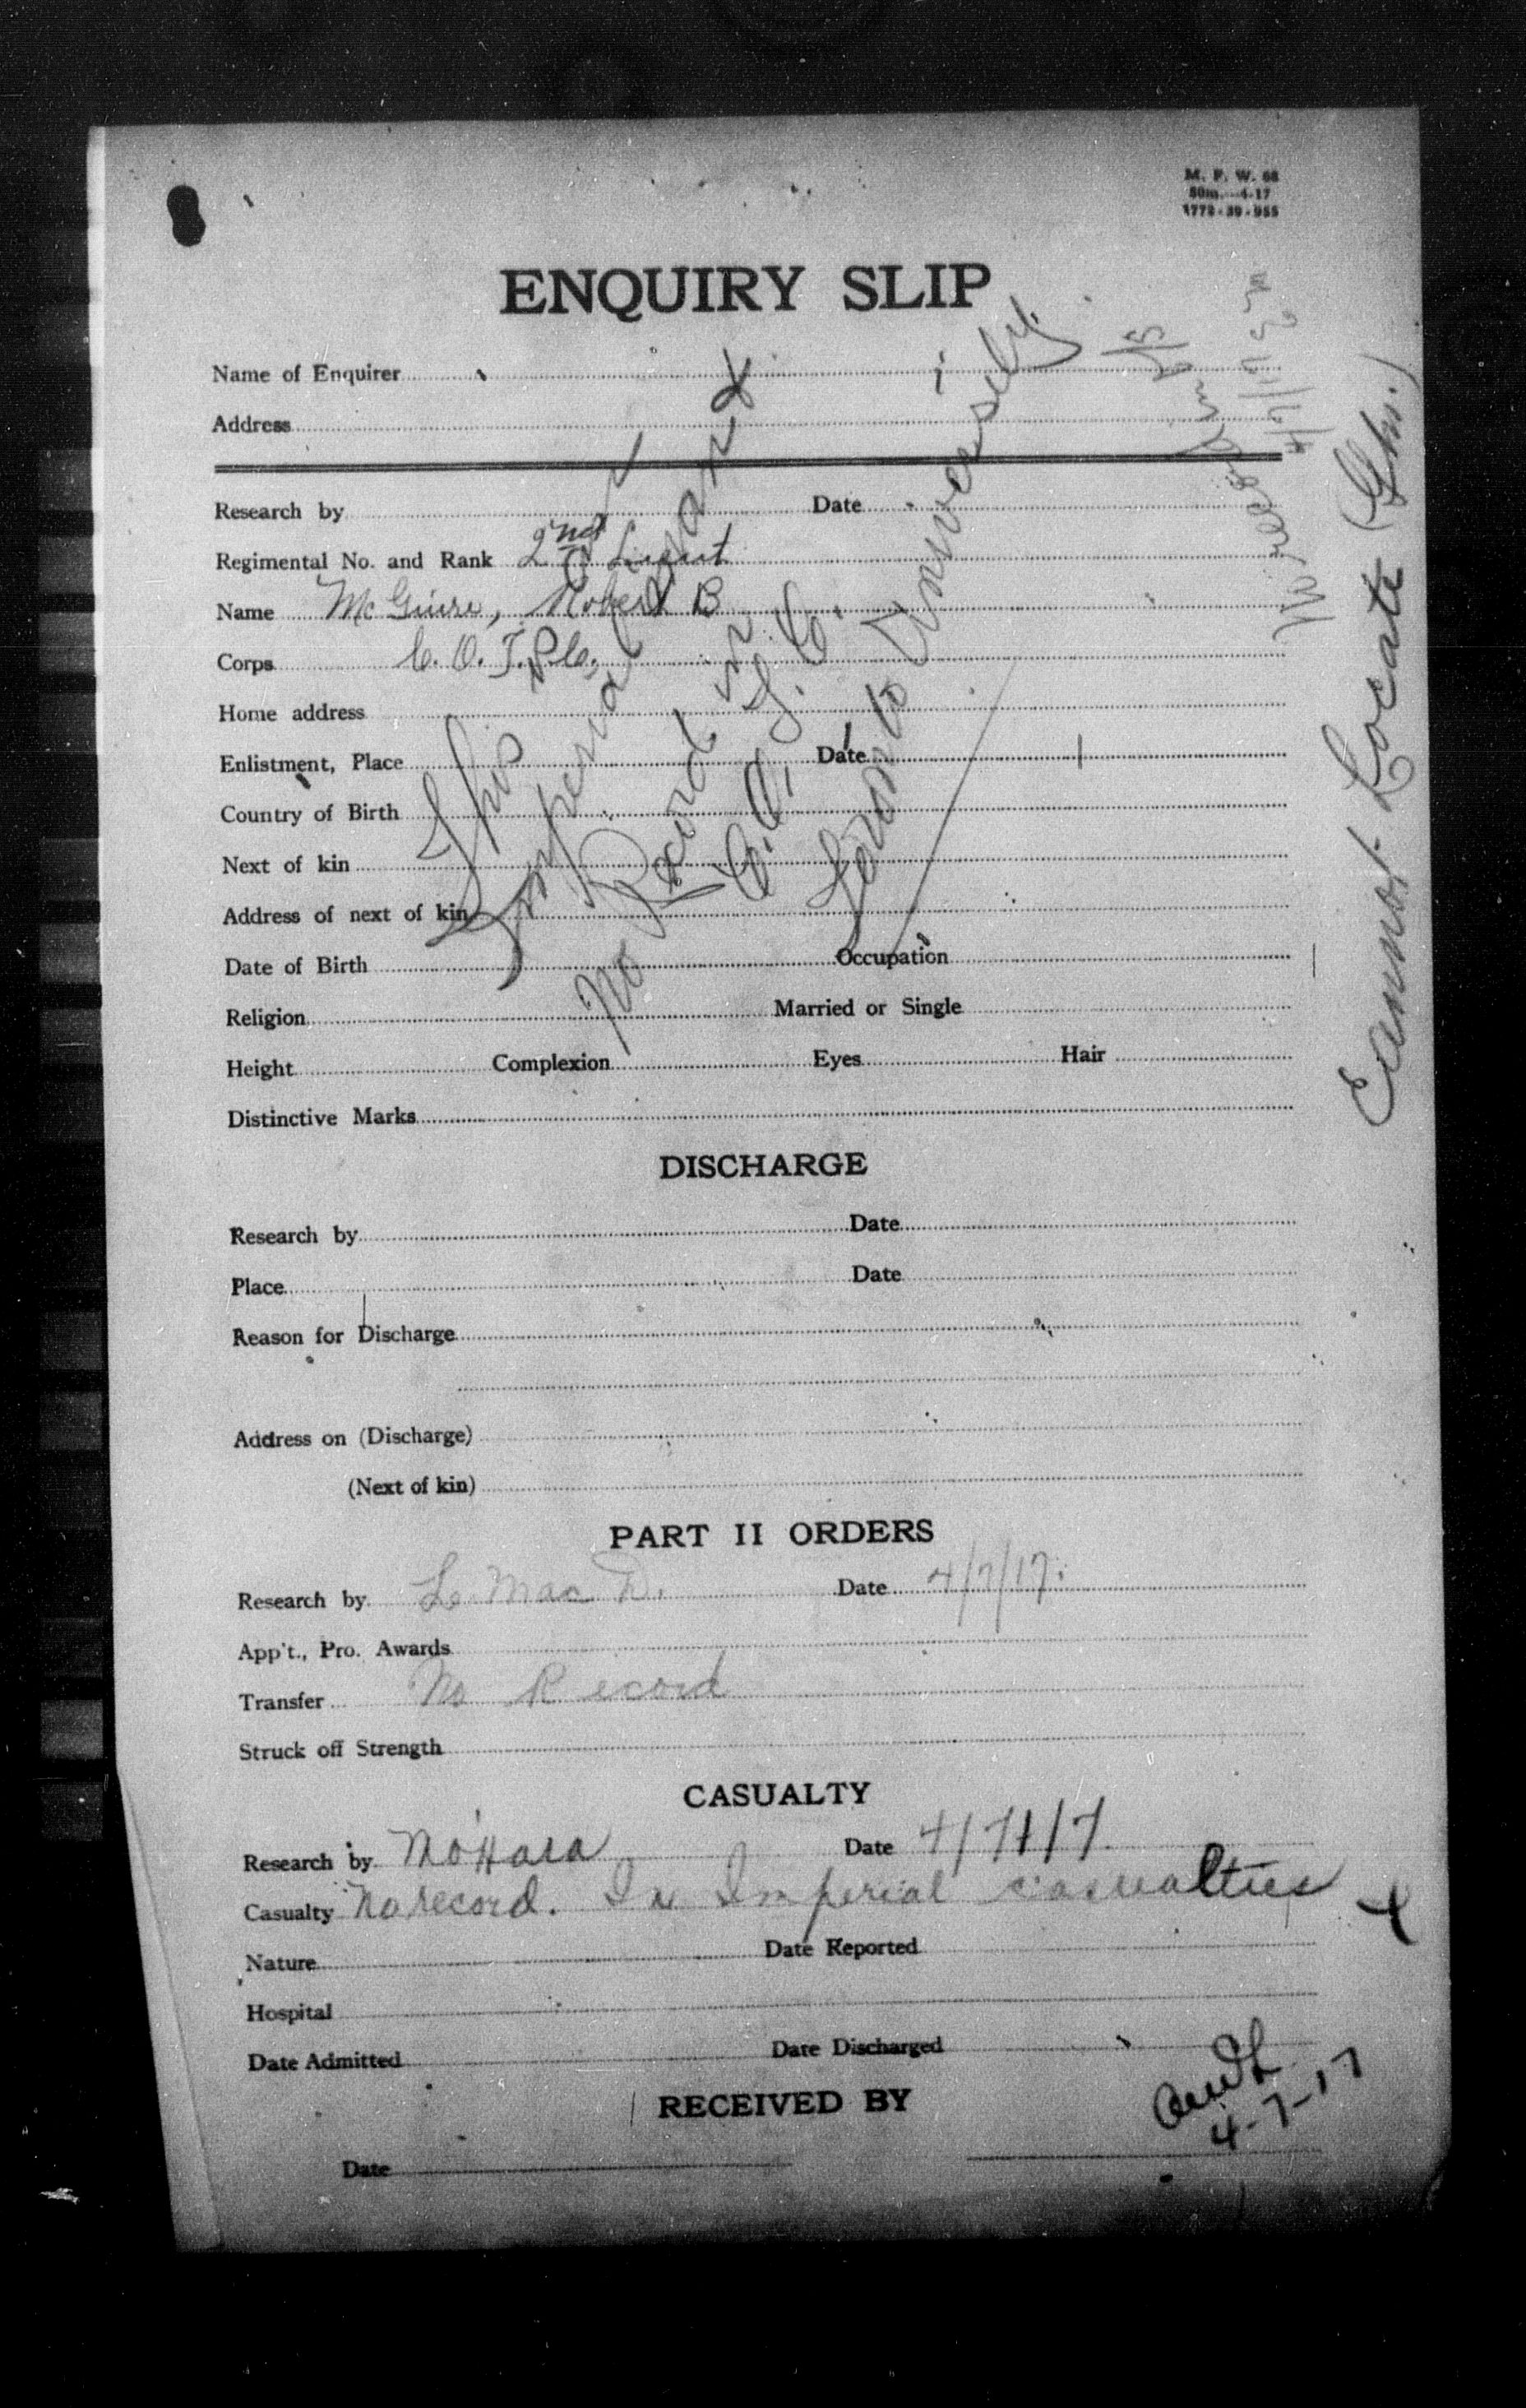 M. F. W. 68
50m.—4-17
1772-39-955
ENQUIRY SLIP
Name of Enquirer
Address
Research by Date
Regimental No. and Rank 2nd Lieut
Name McGuire, Robert B
Corps C. O. T. C.
Home address
Enlistment, Place Date
Country of Birth
Next of kin
Address of next of kin
Date of Birth Occupation
Religion Married or Single
Height Complexion Eyes Hair
Distinctive Marks
This
Imperial
No Record in
C. O. T. C.
Toronto University.
No record
4/7/17
Cannot Locate
DISCHARGE
Research by Date
Place Date
Reason for Discharge
Address on (Discharge)
(Next of kin)
PART II ORDERS
Research by L. MacD. Date 4/7/17.
App't., Pro. Awards
Transfer No Record
Struck off Strength
CASUALTY
Research by MOHara Date 4/7/17
Casualty No record. In Imperial casualties
Nature Date Reported
Hospital
Date Admitted Date Discharged
RECEIVED BY
4-7-17
Date